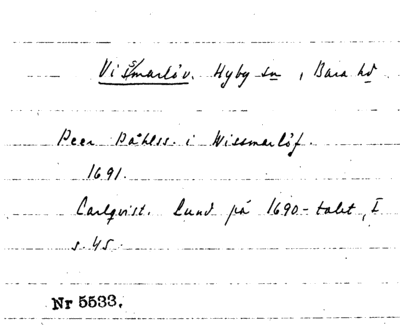 Vissmarlöv. Hyby sn, Bara hd
Peer Påhlss. i Wissmarlöf.
1691.
Carlqvist. Lund på 1690-talet, I
s. 45.
Nr 5533.